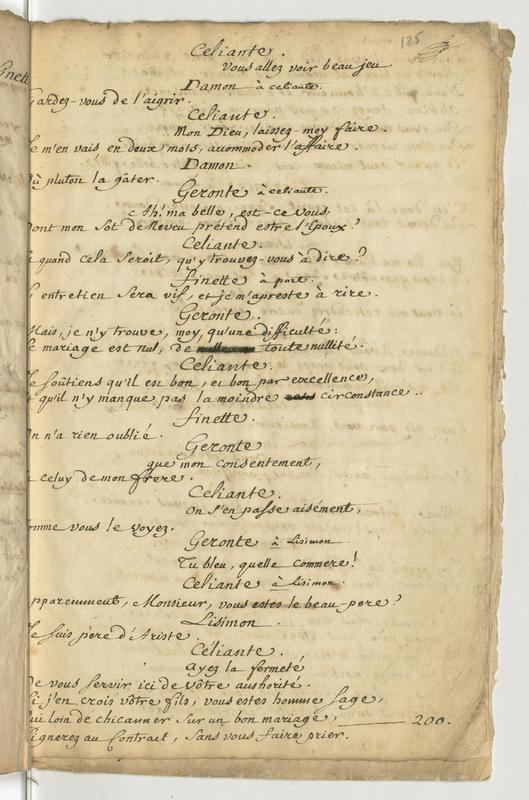 125
Celiante.
Vous allez voir beau jeu
Damon à celiante.
Gardez-vous de l'aigrir.
Celiante.
Mon Dieu, laissez-moy faire.
Je m'en vais, en deux mots, accommoder l'affaire.
Damon.
Où plutost la gâter.
Geronte à celiante.
Ah! ma belle, est-ce vous,
Dont mon Sot de Neveu prétend estre l'Epoux?
Celiante.
quand cela Seroit, qu'y trouvez-vous à dire?
finette à part.
entretien Sera vif, et je m'apreste à rire.
Geronte.
Mais, je n'y trouve, moy, qu'une difficulté:
Le mariage est nul, de toute nullité.
Celiante.
Je Soûtiens qu'il est bon, et bon par excellence,
Et qu'il n'y manque pas la moindre circonstance.
finette.
On n'a rien oublié.
Geronte
que mon Consentement,
celuy de mon frere.
Celiante.
On S'en passe aisément,
omme vous le voyez.
Geronte à Lisimon
Tu bleu, quelle Commere!
Celiante à Lisimon.
pparemment, Monsieur, vous estes le beau-pere?
Lisimon.
Je Suis pere d'Ariste.
Céliante.
ayez la fermeté
De vous Servir ici de vôtre authorité.
Si j'en crois vôtre fils, vous estes homme Sage,
qui loin de chicanner Sur un bon mariage, 200.
Signerez au Contract, Sans vous faire prier.